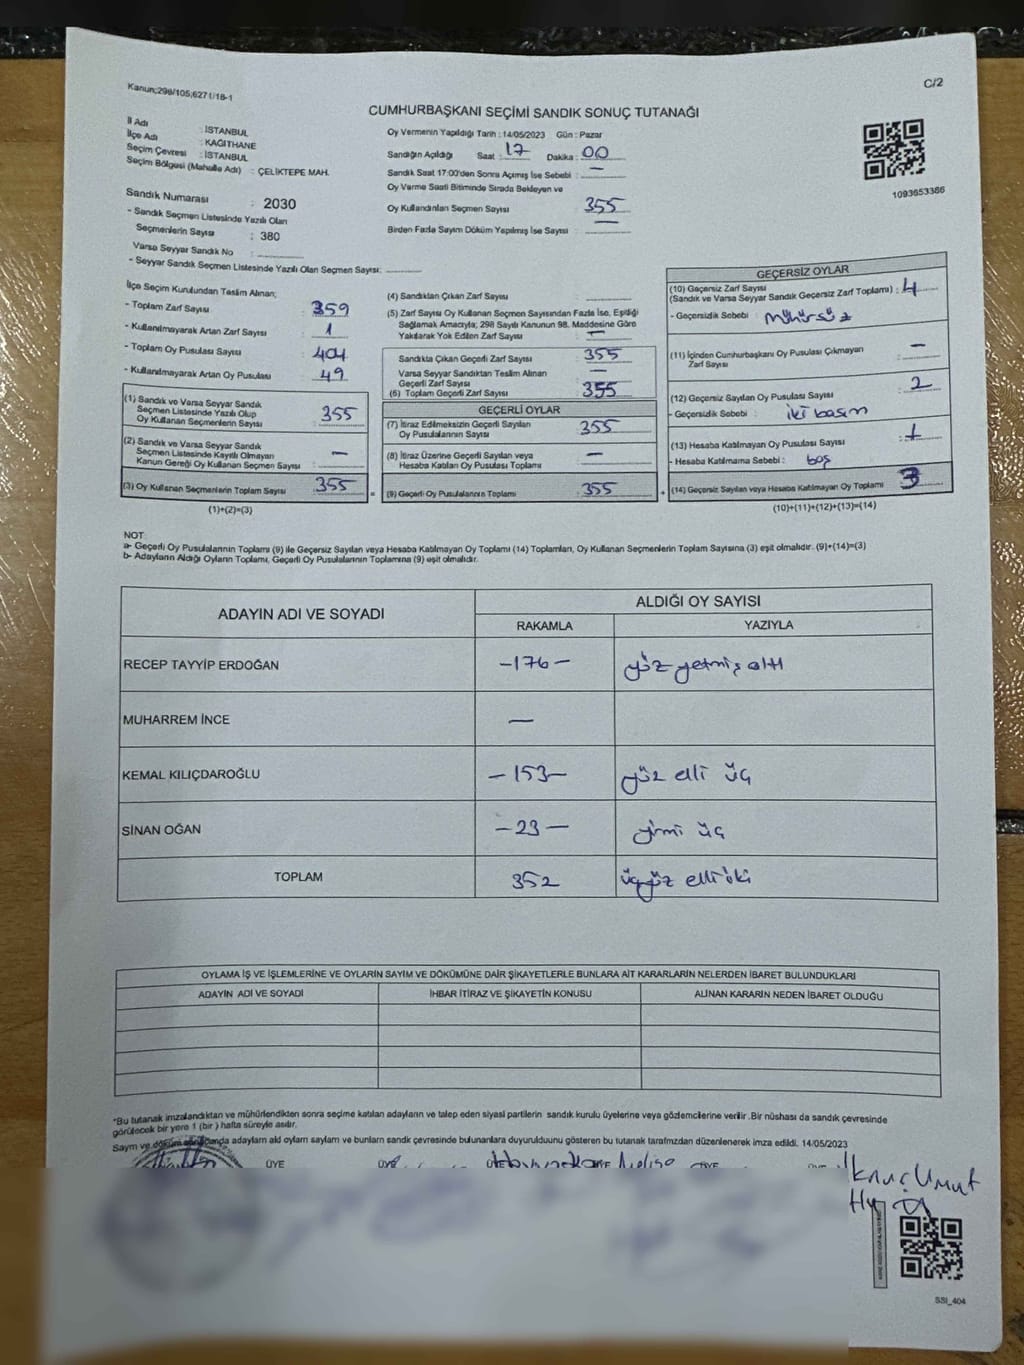 Kanun;298/105,6271/18-1
C/2
CUMHURBAŞKANI SEÇİMİ SANDIK SONUÇ TUTANAĞI
İl Adı : İSTANBUL
İlçe Adı : KAĞITHANE
Seçim Çevresi : İSTANBUL
Seçim Bölgesi (Mahalle Adı) : ÇELİKTEPE MAH.
Sandık Numarası : 2030
- Sandık Seçmen Listesinde Yazılı Olan
Seçmenlerin Sayısı : 380
Varsa Seyyar Sandık No :
- Seyyar Sandık Seçmen Listesinde Yazılı Olan Seçmen Sayısı:
Oy Vermenin Yapıldığı Tarih : 14/05/2023 Gün : Pazar
Sandığın Açıldığı Saat : 17 Dakika : 00
Sandık Saat 17:00'den Sonra Açımış İse Sebebi : —
Oy Verme Saati Bitiminde Sırada Bekleyen ve
Oy Kullandırılan Seçmen Sayısı : 355
Birden Fazla Sayım Döküm Yapılmış İse Sayısı : —
1093653386
İlçe Seçim Kurulundan Teslim Alınan;
- Toplam Zarf Sayısı : 359
- Kullanılmayarak Artan Zarf Sayısı : 1
- Toplam Oy Pusulası Sayısı : 404
- Kullanılmayarak Artan Oy Pusulası : 49
(1) Sandık ve Varsa Seyyar Sandık
Seçmen Listesinde Yazılı Olup
Oy Kullanan Seçmenlerin Sayısı : 355
(2) Sandık ve Varsa Seyyar Sandık
Seçmen Listesinde Kayıtlı Olmayan
Kanun Gereği Oy Kullanan Seçmen Sayısı : —
(3) Oy Kullanan Seçmenlerin Toplam Sayısı : 355
(1)+(2)=(3)
(4) Sandıktan Çıkan Zarf Sayısı :
(5) Zarf Sayısı Oy Kullanan Seçmen Sayısından Fazla İse, Eşitliği
Sağlamak Amacıyla; 298 Sayılı Kanunun 98. Maddesine Göre
Yakılarak Yok Edilen Zarf Sayısı : —
Sandıkta Çıkan Geçerli Zarf Sayısı : 355
Varsa Seyyar Sandıktan Teslim Alınan
Geçerli Zarf Sayısı : —
(6) Toplam Geçerli Zarf Sayısı : 355
GEÇERLİ OYLAR
(7) İtiraz Edilmeksizin Geçerli Sayılan
Oy Pusulalarının Sayısı : 355
(8) İtiraz Üzerine Geçerli Sayılan veya
Hesaba Katılan Oy Pusulası Toplamı : —
= (9) Geçerli Oy Pusulalarının Toplamı : 355 +
GEÇERSİZ OYLAR
(10) Geçersiz Zarf Sayısı
(Sandık ve Varsa Seyyar Sandık Geçersiz Zarf Toplamı) : 4
- Geçersizlik Sebebi : Mühürsüz
(11) İçinden Cumhurbaşkanı Oy Pusulası Çıkmayan
Zarf Sayısı : —
(12) Geçersiz Sayılan Oy Pusulası Sayısı : 2
- Geçersizlik Sebebi : iki basım
(13) Hesaba Katılmayan Oy Pusulası Sayısı : 1
- Hesaba Katılmama Sebebi : boş
(14) Geçersiz Sayılan veya Hesaba Katılmayan Oy Toplamı : 3
(10)+(11)+(12)+(13)=(14)
NOT:
a- Geçerli Oy Pusulalarının Toplamı (9) ile Geçersiz Sayılan veya Hesaba Katılmayan Oy Toplamı (14) Toplamları, Oy Kullanan Seçmenlerin Toplam Sayısına (3) eşit olmalıdır. (9)+(14)=(3)
b- Adayların Aldığı Oyların Toplamı, Geçerli Oy Pusulalarının Toplamına (9) eşit olmalıdır.
ADAYIN ADI VE SOYADI
ALDIĞI OY SAYISI
RAKAMLA YAZIYLA
RECEP TAYYİP ERDOĞAN -176- yüz yetmiş altı
MUHARREM İNCE —
KEMAL KILIÇDAROĞLU -153- yüz elli üç
SİNAN OĞAN -23- yirmi üç
TOPLAM 352 üçyüz elli iki
OYLAMA İŞ VE İŞLEMLERİNE VE OYLARIN SAYIM VE DÖKÜMÜNE DAİR ŞİKAYETLERLE BUNLARA AİT KARARLARIN NELERDEN İBARET BULUNDUKLARI
ADAYIN ADI VE SOYADI İHBAR İTİRAZ VE ŞİKAYETİN KONUSU ALINAN KARARIN NEDEN İBARET OLDUĞU
*Bu tutanak imzalandıktan ve mühürlendikten sonra seçime katılan adayların ve talep eden siyasi partilerin sandık kurulu üyelerine veya gözlemcilerine verilir .Bir nüshası da sandık çevresinde
görülecek bir yere 1 (bir) hafta süreyle asılır.
Sayım ve döküm adayların aldı oyların sayılam ve bunların sandık çevresinde bulunanlara duyurulduunu gösteren bu tutanak tarafımızdan düzenlenerek imza edildi. 14/05/2023
ÜYE
Umut
SSI_404